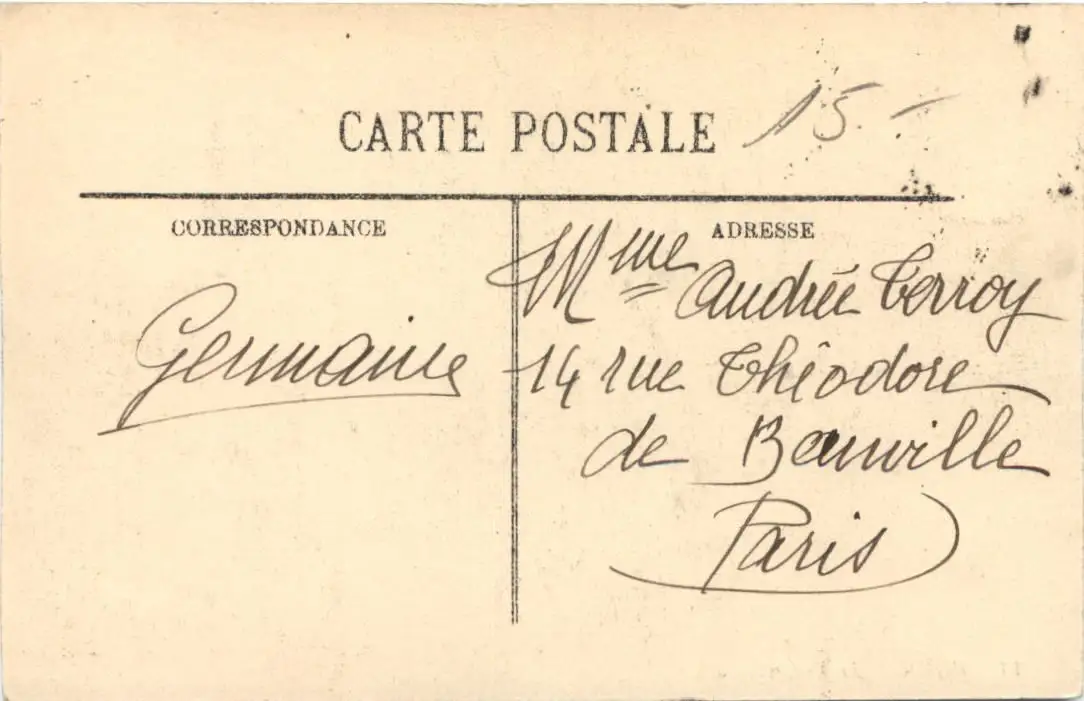 CARTE POSTALE 15.-
CORRESPONDANCE
ADRESSE
Germaine
Mme Andrée Terroy
14 rue Théodore
de Banville
Paris